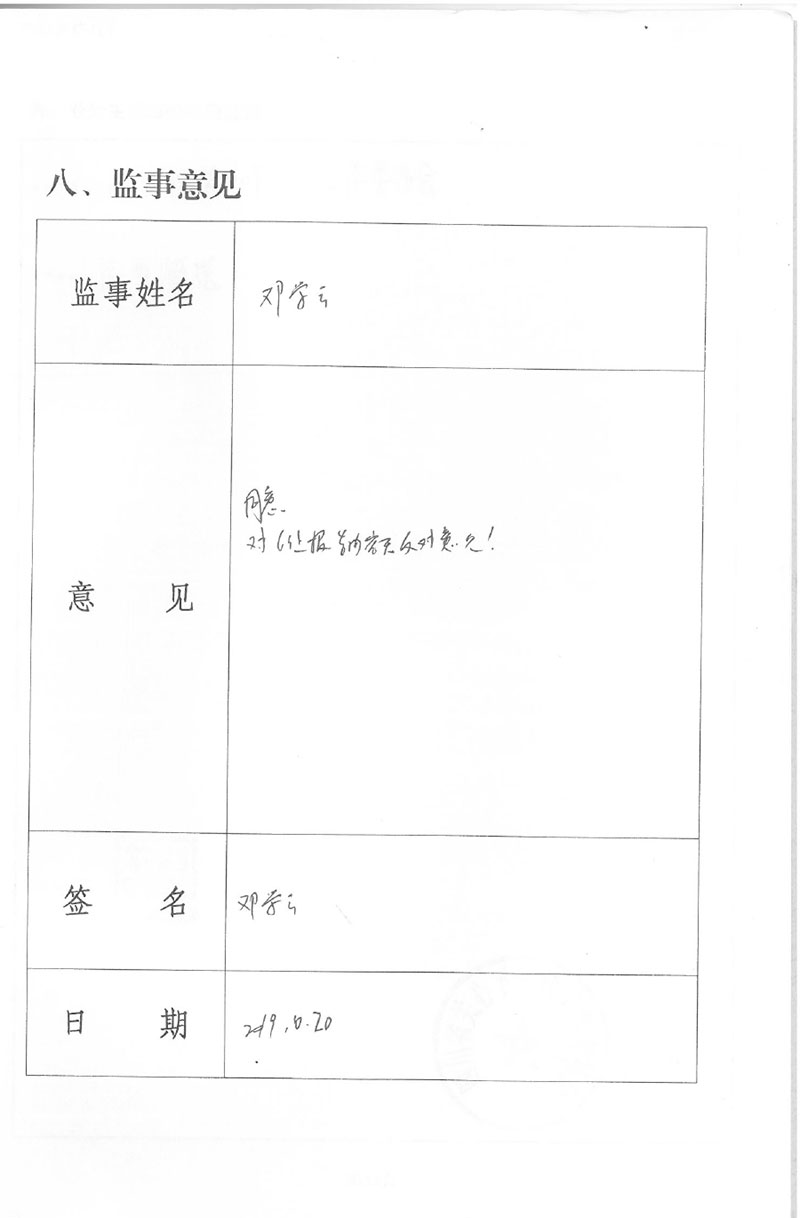 八、监事意见
监事姓名 邓学云
意 见
同意.
对年报内容无反对意见!
签 名 邓学云
日 期 2019.6.20